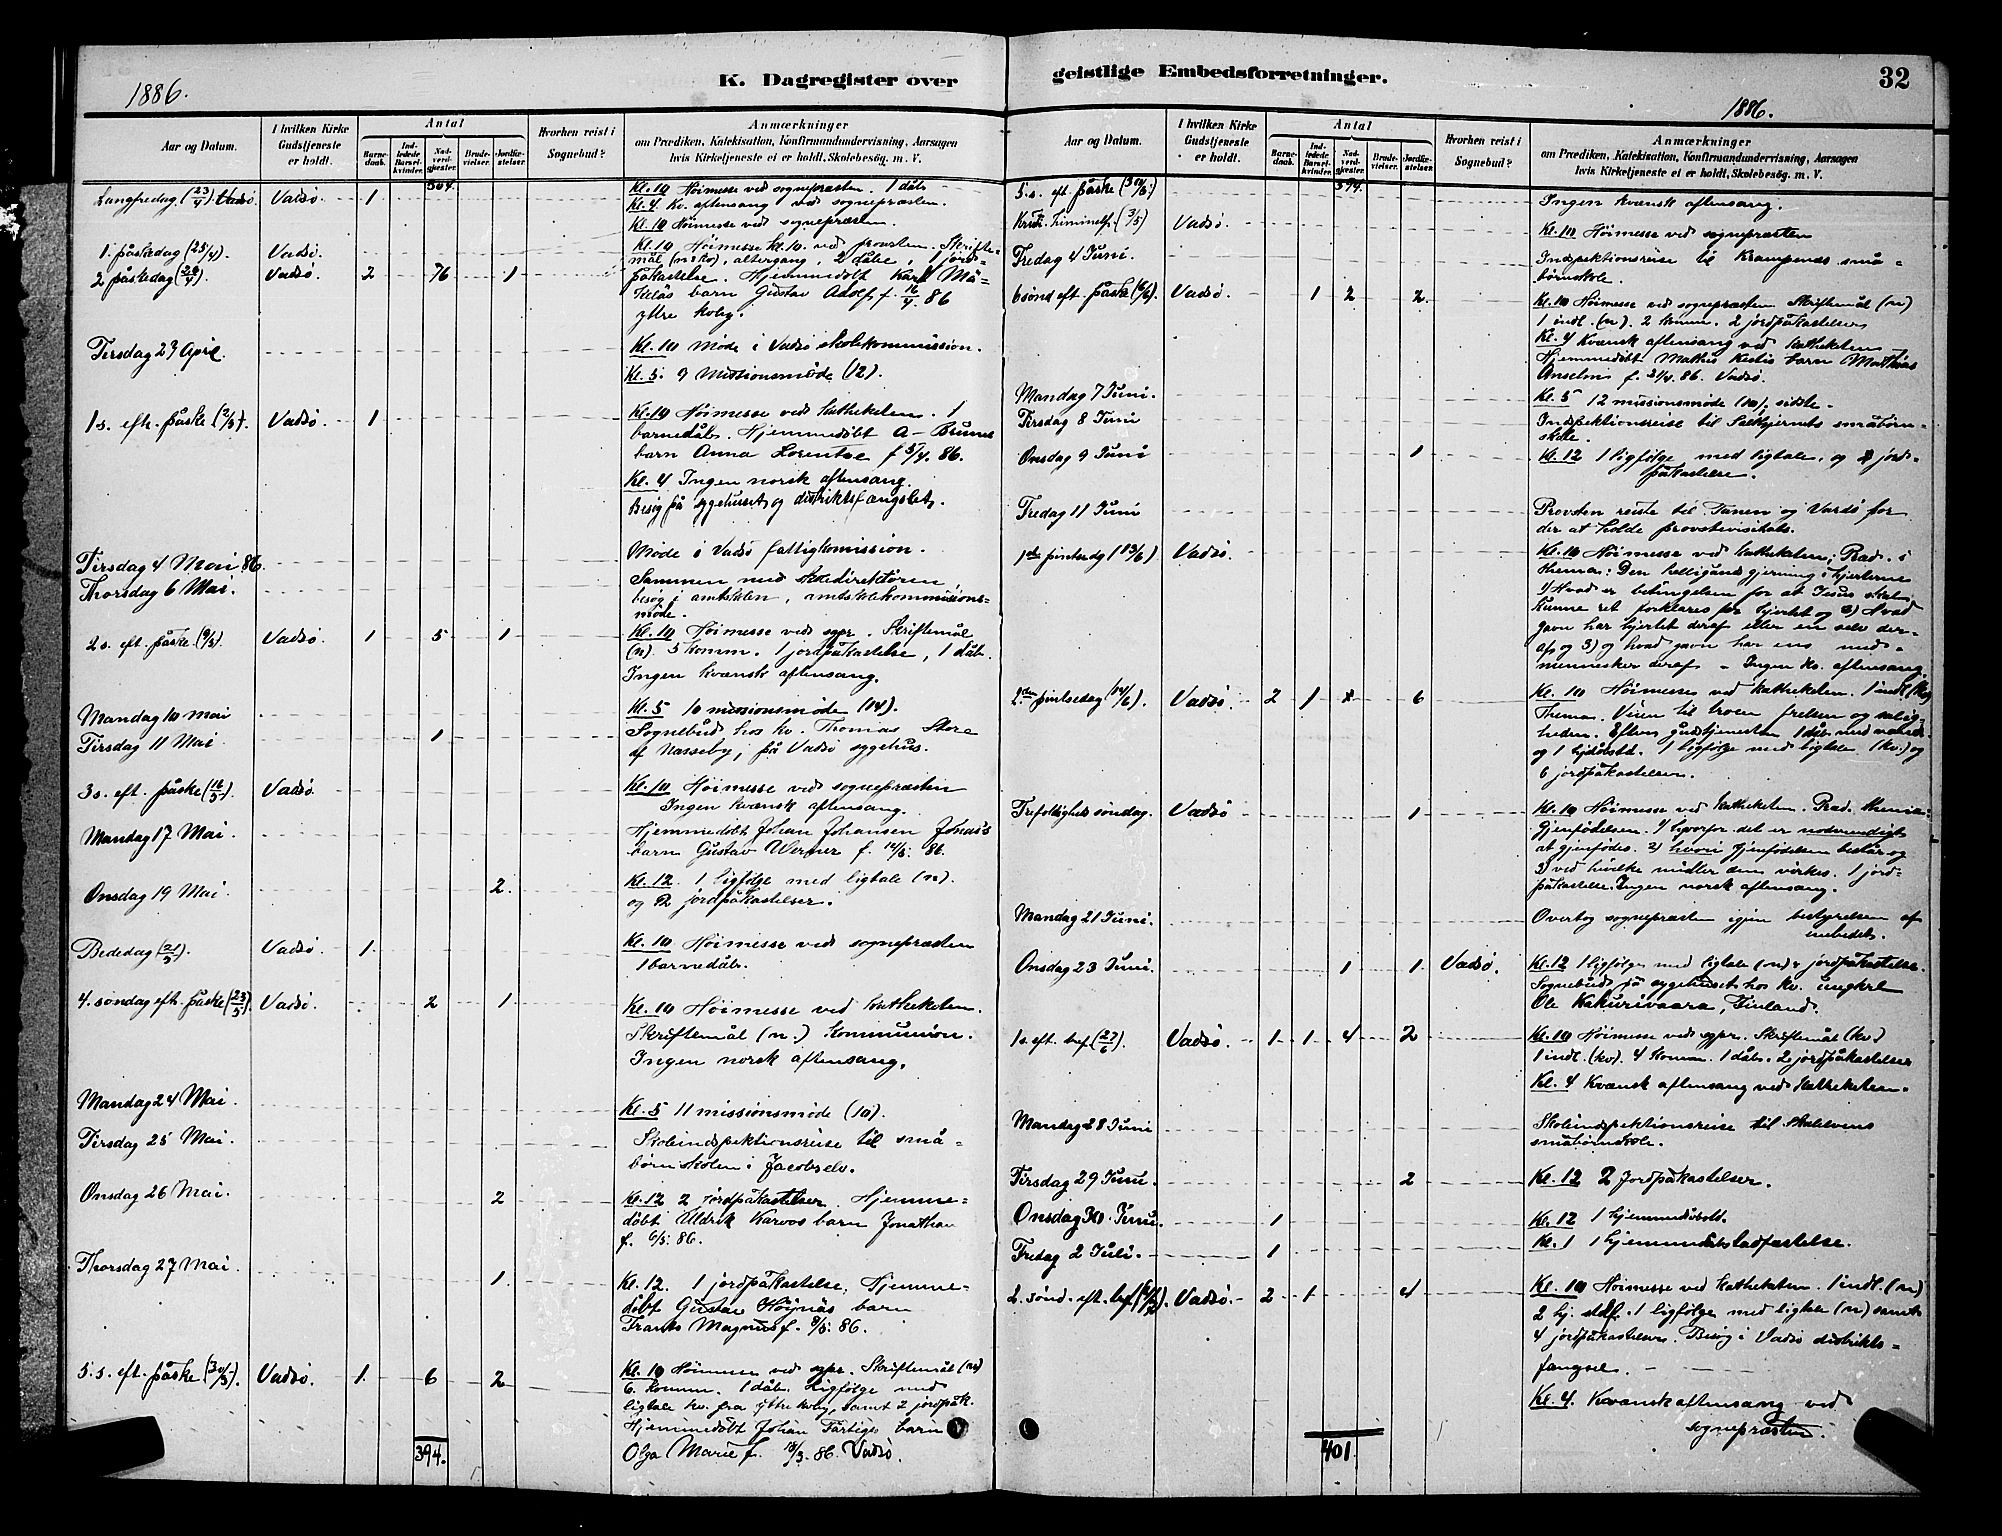 1886.
K. Dagregister over
Aar og Datum.
I hvilken Kirke Gudstjeneste er holdt.
Antal
Barnedaab.
Indledede Barselkvinder.
Nadverdgjester.
Brudevielser.
Jordfæstelser.
Hvorhen reist i Sognebud?
Anmærkninger
om Prædiken, Katekisation, Konfirmandundervisning, Aarsagen
hvis Kirketjeneste ei er holdt, Skolebesøg. m. V.
Langfredag (23/4) Vadsø. 1
Kl. 10 Høimesse ved sognepræsten. 1 dåb
Kl. 4 Kv. aftensang ved sognepræsten.
1. påskedag (25/4) Vadsø.
Kl. 10 Høimesse ved sognepræsten.
2 påskedag (26/4) Vadsø. 2 76 1
Kl. 10 Høimesse kl. 10. ved provsten. Skrifte-
mål (n & kv), altergang, 2 dåbe, 1 jord-
påkastelse. Hjemmedøbt Karl Mä-
keläs barn Gustav Adolf f. 16/4 86
ytre koby.
Tirsdag 27 April.
Kl. 10 Møde i Vadsø skolekommission.
Kl. 5. 9 Missionsmøde (12).
1 s. eft. påske (2/5). Vadsø. 1
Kl. 10 Høimesse ved katheketen. 1
barnedåb. Hjemmedøbt A- Brunes
barn Anna Lorentse f 5/4. 86.
Kl. 4 Ingen norsk aftensang.
Besøg på sygehuset og distriktsfængslet.
Tirsdag 4 Mai 86.
Møde i Vadsø fattigkomission.
Thorsdag 6 Mai.
Sammen med skoledirektøren
besøg i amtsskolen, amtsskolekommissions-
møde.
2 s. eft. påske (9/5). Vadsø. 1 5 1
Kl. 10 Høimesse ved sgpr. Skriftemål
(n). 5 komm. 1 jordpåkastelse, 1 dåb.
Ingen kvænsk aftensang.
Mandag 10 mai
Kl. 5 10 missionsmøde (14).
Tirsdag 11 Mai. 1
Sognebud hos kv. Thomas Store
af Nasseby, på Vadsø sygehus.
3 s. eft. påske (16/5). Vadsø.
Kl. 10 Høimesse ved sognepræsten
Ingen kvænsk aftensang.
Mandag 17 Mai.
Hjemmedøbt Johan Johansen Jonas's
barn Gustav Werner f. 12/5. 86.
Onsdag 19 Mai. 2.
Kl. 12. 1 ligfølge med ligtale (n).
og 2 jordpåkastelser.
Bededag (21/5). Vadsø. 1.
Kl. 10 Høimesse ved sognepræsten
1 barnedåb.
4. søndag eft. påske (23/5). Vadsø. 2 1
Kl. 10 Høimesse ved katheketen.
Skriftemål (n.) Kommunion.
Ingen norsk aftensang.
Mandag 24 Mai.
Kl. 5 11 missionsmøde (10).
Tirsdag 25 Mai.
Skoleindspektionsreise til små-
børnsskolen i Jacobselv.
Onsdag 26 Mai. 2
Kl. 12 2 jordpåkastelser. Hjemme-
døbt Uldrik Karvos barn Jonathan
f. 6/5. 86.
Thorsdag 27 Mai. 1.
Kl. 12. 1 jordpåkastelse, Hjemme-
døbt Gustav barn
Frants Magnus f. 9/5. 86.
5. s. eft. påske (30/5). Vadsø. 1. 6 2
Kl. 10 Høimesse ved sgpr. Skriftemål (n)
6. komm. 1 dåb. Ligfølge med
ligtale kv. fra ytre koby, samt 2 jordpåk.
Hjemmedøbt Johan barn
Olga Marie f. 18/3. 86. Vadsø.
394.
geistlige Embedsforretninger.
32
1886.
Aar og Datum.
I hvilken Kirke Gudstjeneste er holdt.
Antal
Barnedaab.
Indledede Barselkvinder.
Nadverdgjester.
Brudevielser.
Jordfæstelser.
Hvorhen reist i Sognebud?
Anmærkninger
om Prædiken, Katekisation, Konfirmandundervisning, Aarsagen
hvis Kirketjeneste ei er holdt, Skolebesøg. m. V.
5. s. eft. påske (30/5.) 394.
Ingen kvænsk aftensang.
Krist. himmelf. (3/6) Vadsø.
Kl. 10 Høimesse ved sognepræsten
Fredag 4 Juni.
Indspektionsreise til Krampenæs små-
børnskole.
6 sønd eft. påske (6/6). Vadsø. 1 2 2.
Kl. 10 Høimesse ved sognepræsten Skriftemål (n)
1 indl. (n). 2 komm. 2 jordpåkastelser
Kl. 4 Kvænsk aftensang ved katheketen
Hjemmedøbt Mathis barn Mathias
Anselm f. 21/4. 86. Vadsø.
Mandag 7 Juni.
Kl. 5 12 missionsmøde (10). sidste.
Tirsdag 8 Juni
Indspektionsreise til småbørn-
skole.
Onsdag 9 Juni 1
Kl. 12 1 ligfølge med ligtale, og jord-
påkastelse.
Fredag 11 Juni
Provsten reiste til Tanen og Vardø for
der at holde provstevisitats.
1ste pintsedg (13/6) Vadsø.
Kl. 10 Høimesse ved katheketen; Præd. i
thema: Den helligånds gjerning i hjerterne
1) Hvad er betingelsen for at Jesus skal
kunne ret forklares for hjertet og 2) Hvad
gavn har hjertet deraf eller en selv der-
af og 3) og hvad gavn har ens med-
mennesker deraf - Ingen kv. aftensang.
2den pintsedag (14/6). Vadsø. 2 1 6
Kl. 10 Høimesse ved katheketen. 1 indl (kv)
Thema. Veien til troen frelsen og salig-
heden. Efter gudstjenesten 1 dåb med
og 1 hjdøbstd. 1 ligfølge med ligtale (kv.) og
6 jordpåkastelser.
Trefoldigheds søndag. Vadsø 1
Kl. 10 Høimesse ved katheketen. Præd. thema
Gjenfødelsen. 1) hvorfor det er nødvendigt
at gjenfødes. 2) hvori gjenfødelsen består og
3) ved hvilke midler den virkes. 1 jord-
påkastelse. Ingen norsk aftensang.
Mandag 21 Juni.
Overtog sognepræsten igjen bestyrelsen af
embedet.
Onsdag 23 Juni. 1 1 Vadsø.
Kl. 12 1 ligfølge med ligtale (n) & jordpåkastelse.
Sognebud på sygehuset hos kv. ungkrl
Ole Kakurivaara, Finland.
1 s. eft. tref. (27/6). Vadsø. 1 1 4 2
Kl. 10 Høimesse ved sgpr. Skriftemål (kv.)
1 indl. (kv). 4 komm. 1 dåb. 2 jordpåkastelser
Kl. 4 Kvænsk aftensang ved katheketen.
Mandag 28 Juni
Skoleindspektionsreise til Skalelvens
småbørnskole.
Tirsdag 29 Juni. 2
Kl. 12 2 Jordpåkastelser.
Onsdag 30. Juni. 1
Kl. 12 1 hjemmedøbstd.
Fredag 2 Juli. 1
Kl. 1 1 hjemmedøbstadfæstelse.
2. sønd. eft. tref. (4/7). Vadsø. 2 1 4
Kl. 10 Høimesse ved katheketen. 1 indl. (n)
2 hj. stdf. 1 ligfølge med ligtale (n) samt
4 jordpåkastelser. Besøg i Vadsø distrikts-
fængsel.
Kl. 4. Kvænsk aftensang ved
sognepræsten.
401